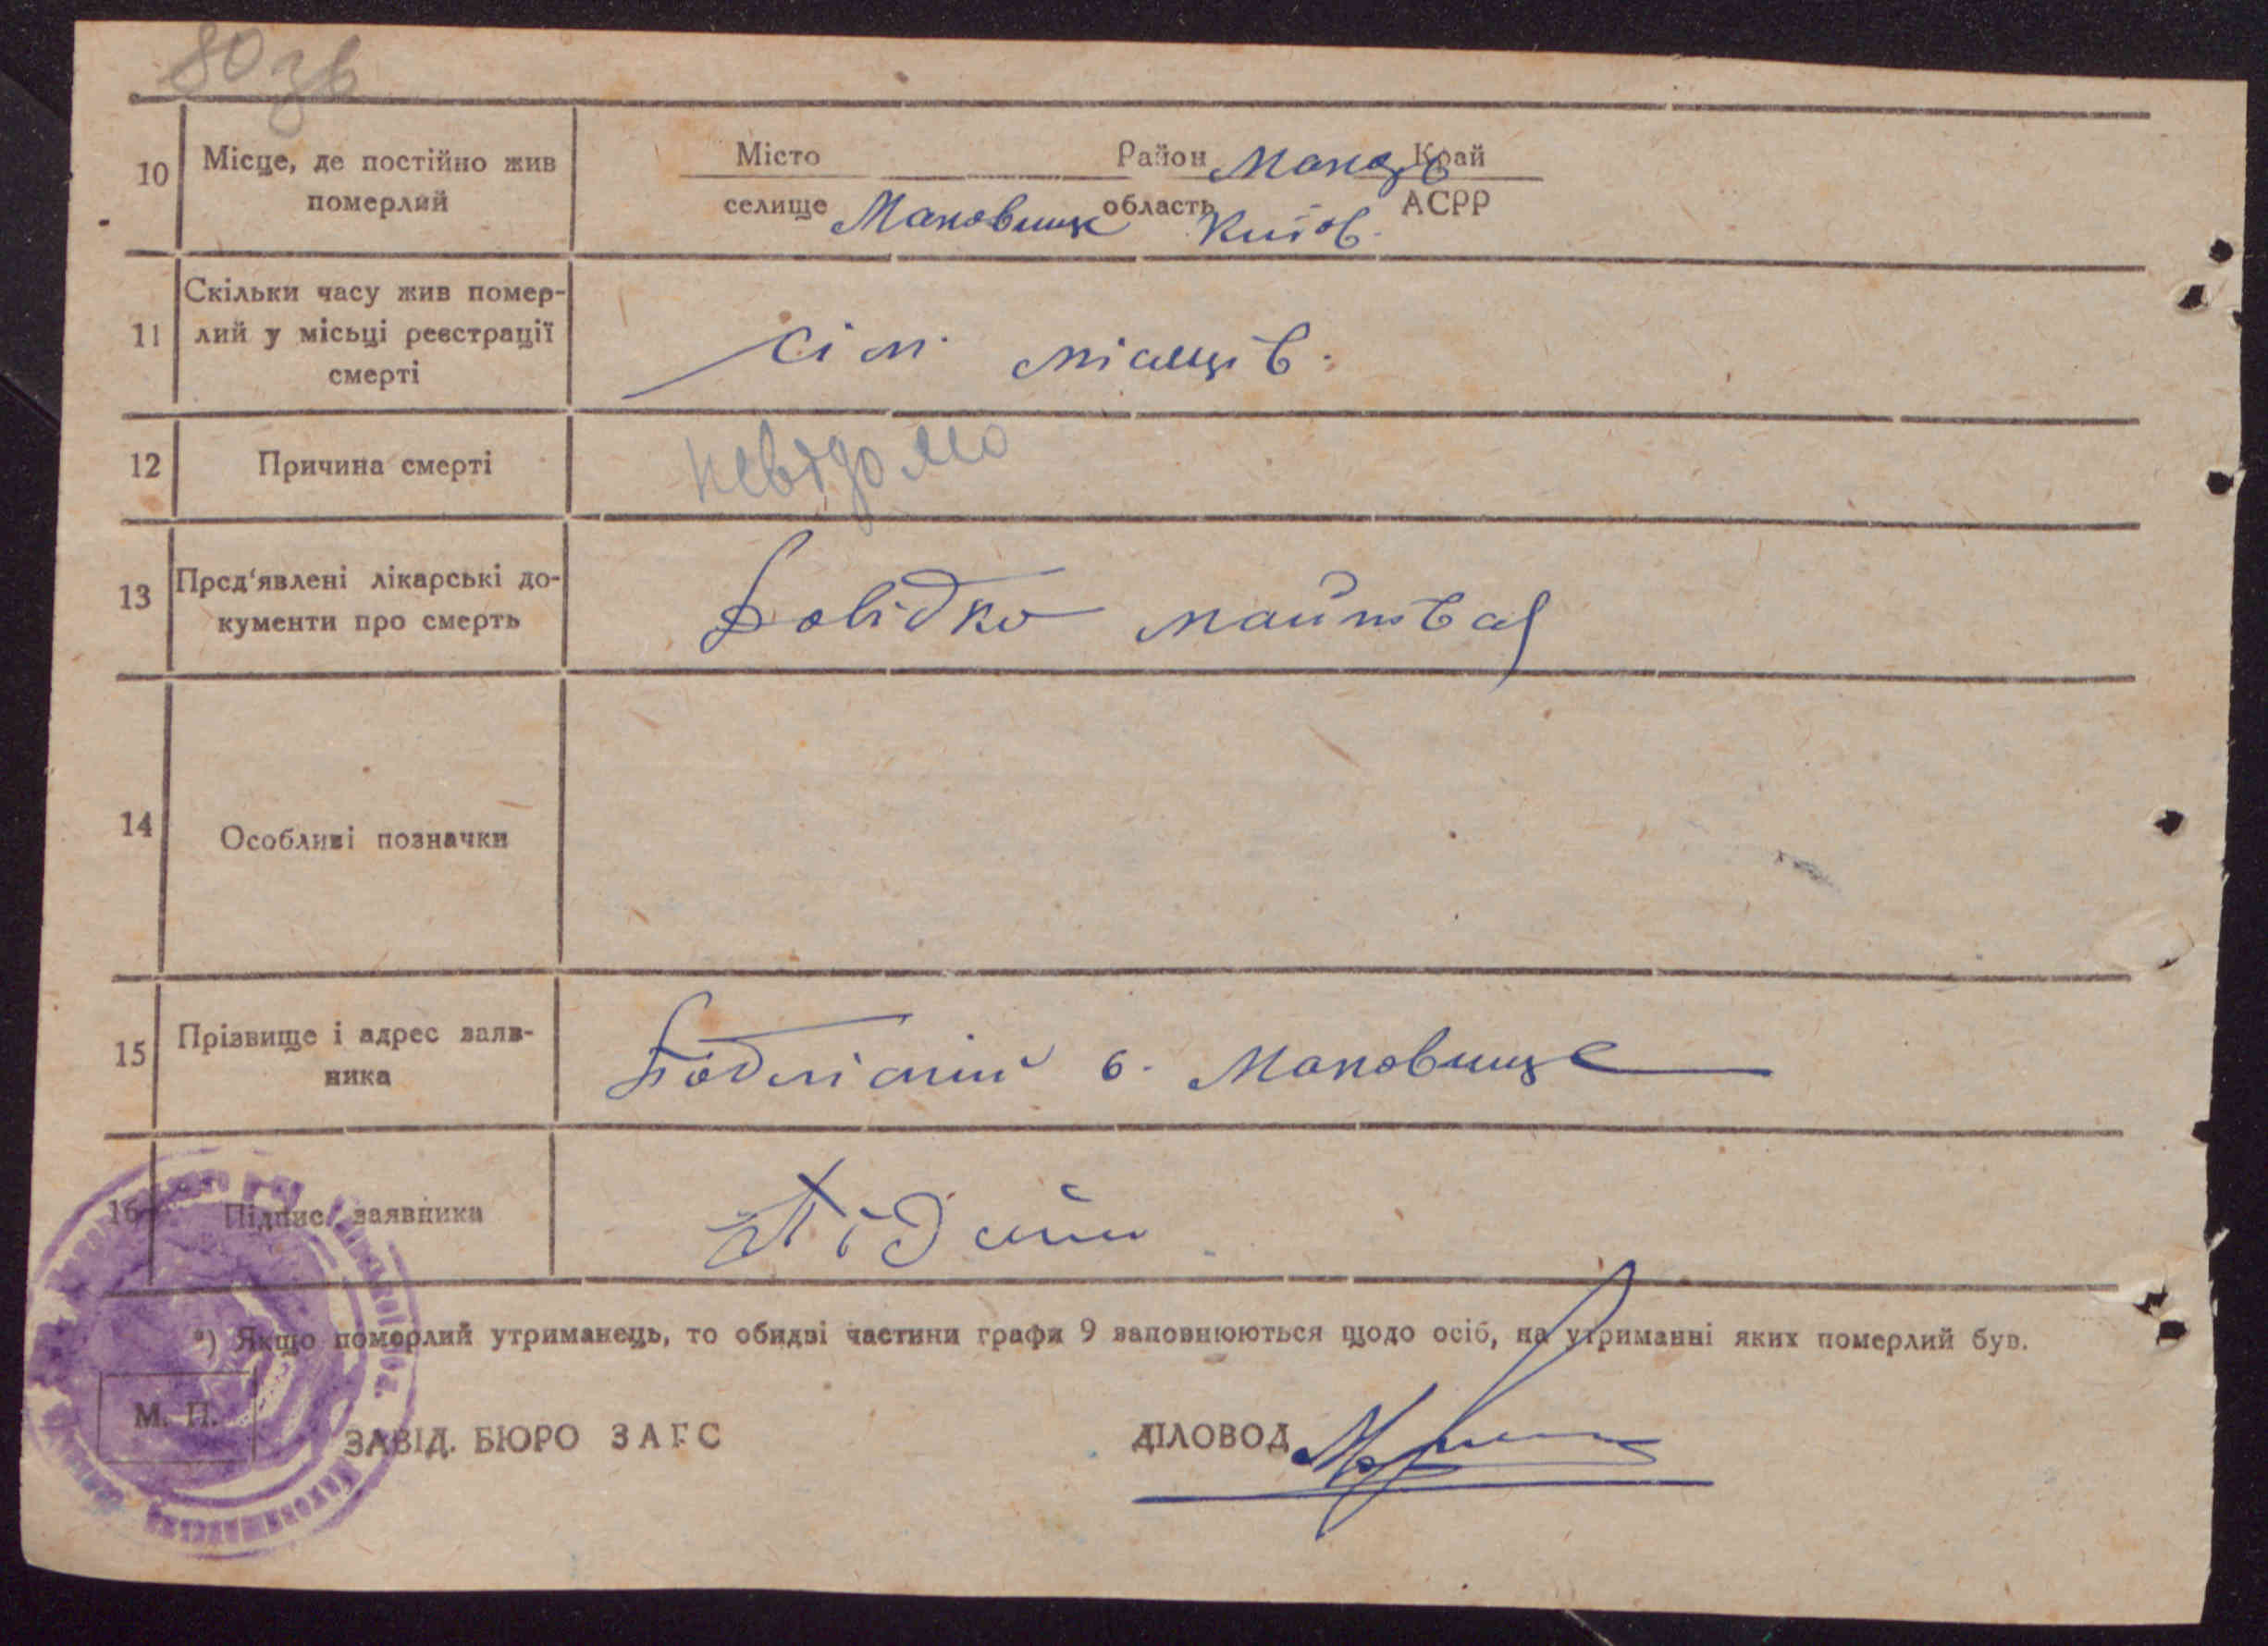 80зв
10 Місце, де постійно жив померлий
Місто Район Макар Край
селище Маковищ область Київ. АСРР
11 Скільки часу жив помер-
лий у місьці реєстрації
смерті
сім місяців.
12 Причина смерті
невідомо
13 Пред'явлені лікарські до-
кументи про смерть
Довідка
14 Особливі позначки
15 Прізвище і адрес заяв-
ника
с. Маковище
16 Підпис заявника
*) Якщо померлий утриманець, то обидві частини графи 9 заповнюються щодо осіб, на утриманні яких померлий був.
М. П.
ЗАВІД. БЮРО ЗАГС ДІЛОВОД